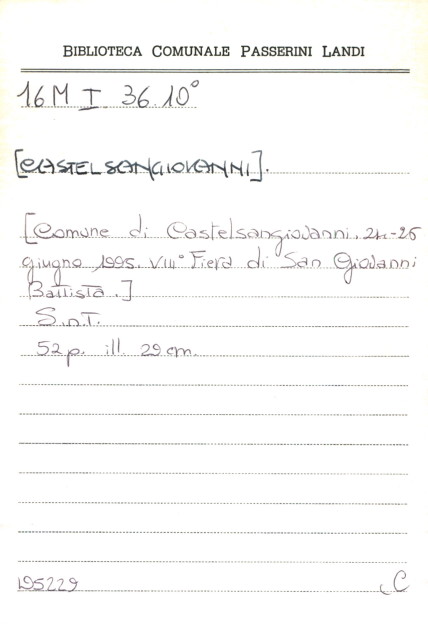 BIBLIOTECA COMUNALE PASSERINI LANDI
16 M I 36.10°
[CASTELSANGIOVANNI].
[Comune di Castelsangiovanni. 24-25
giugno 1995. VIII° Fiera di San Giovanni
Battista.]
S.n.T.
52 p. ill. 29 cm.
195229 C